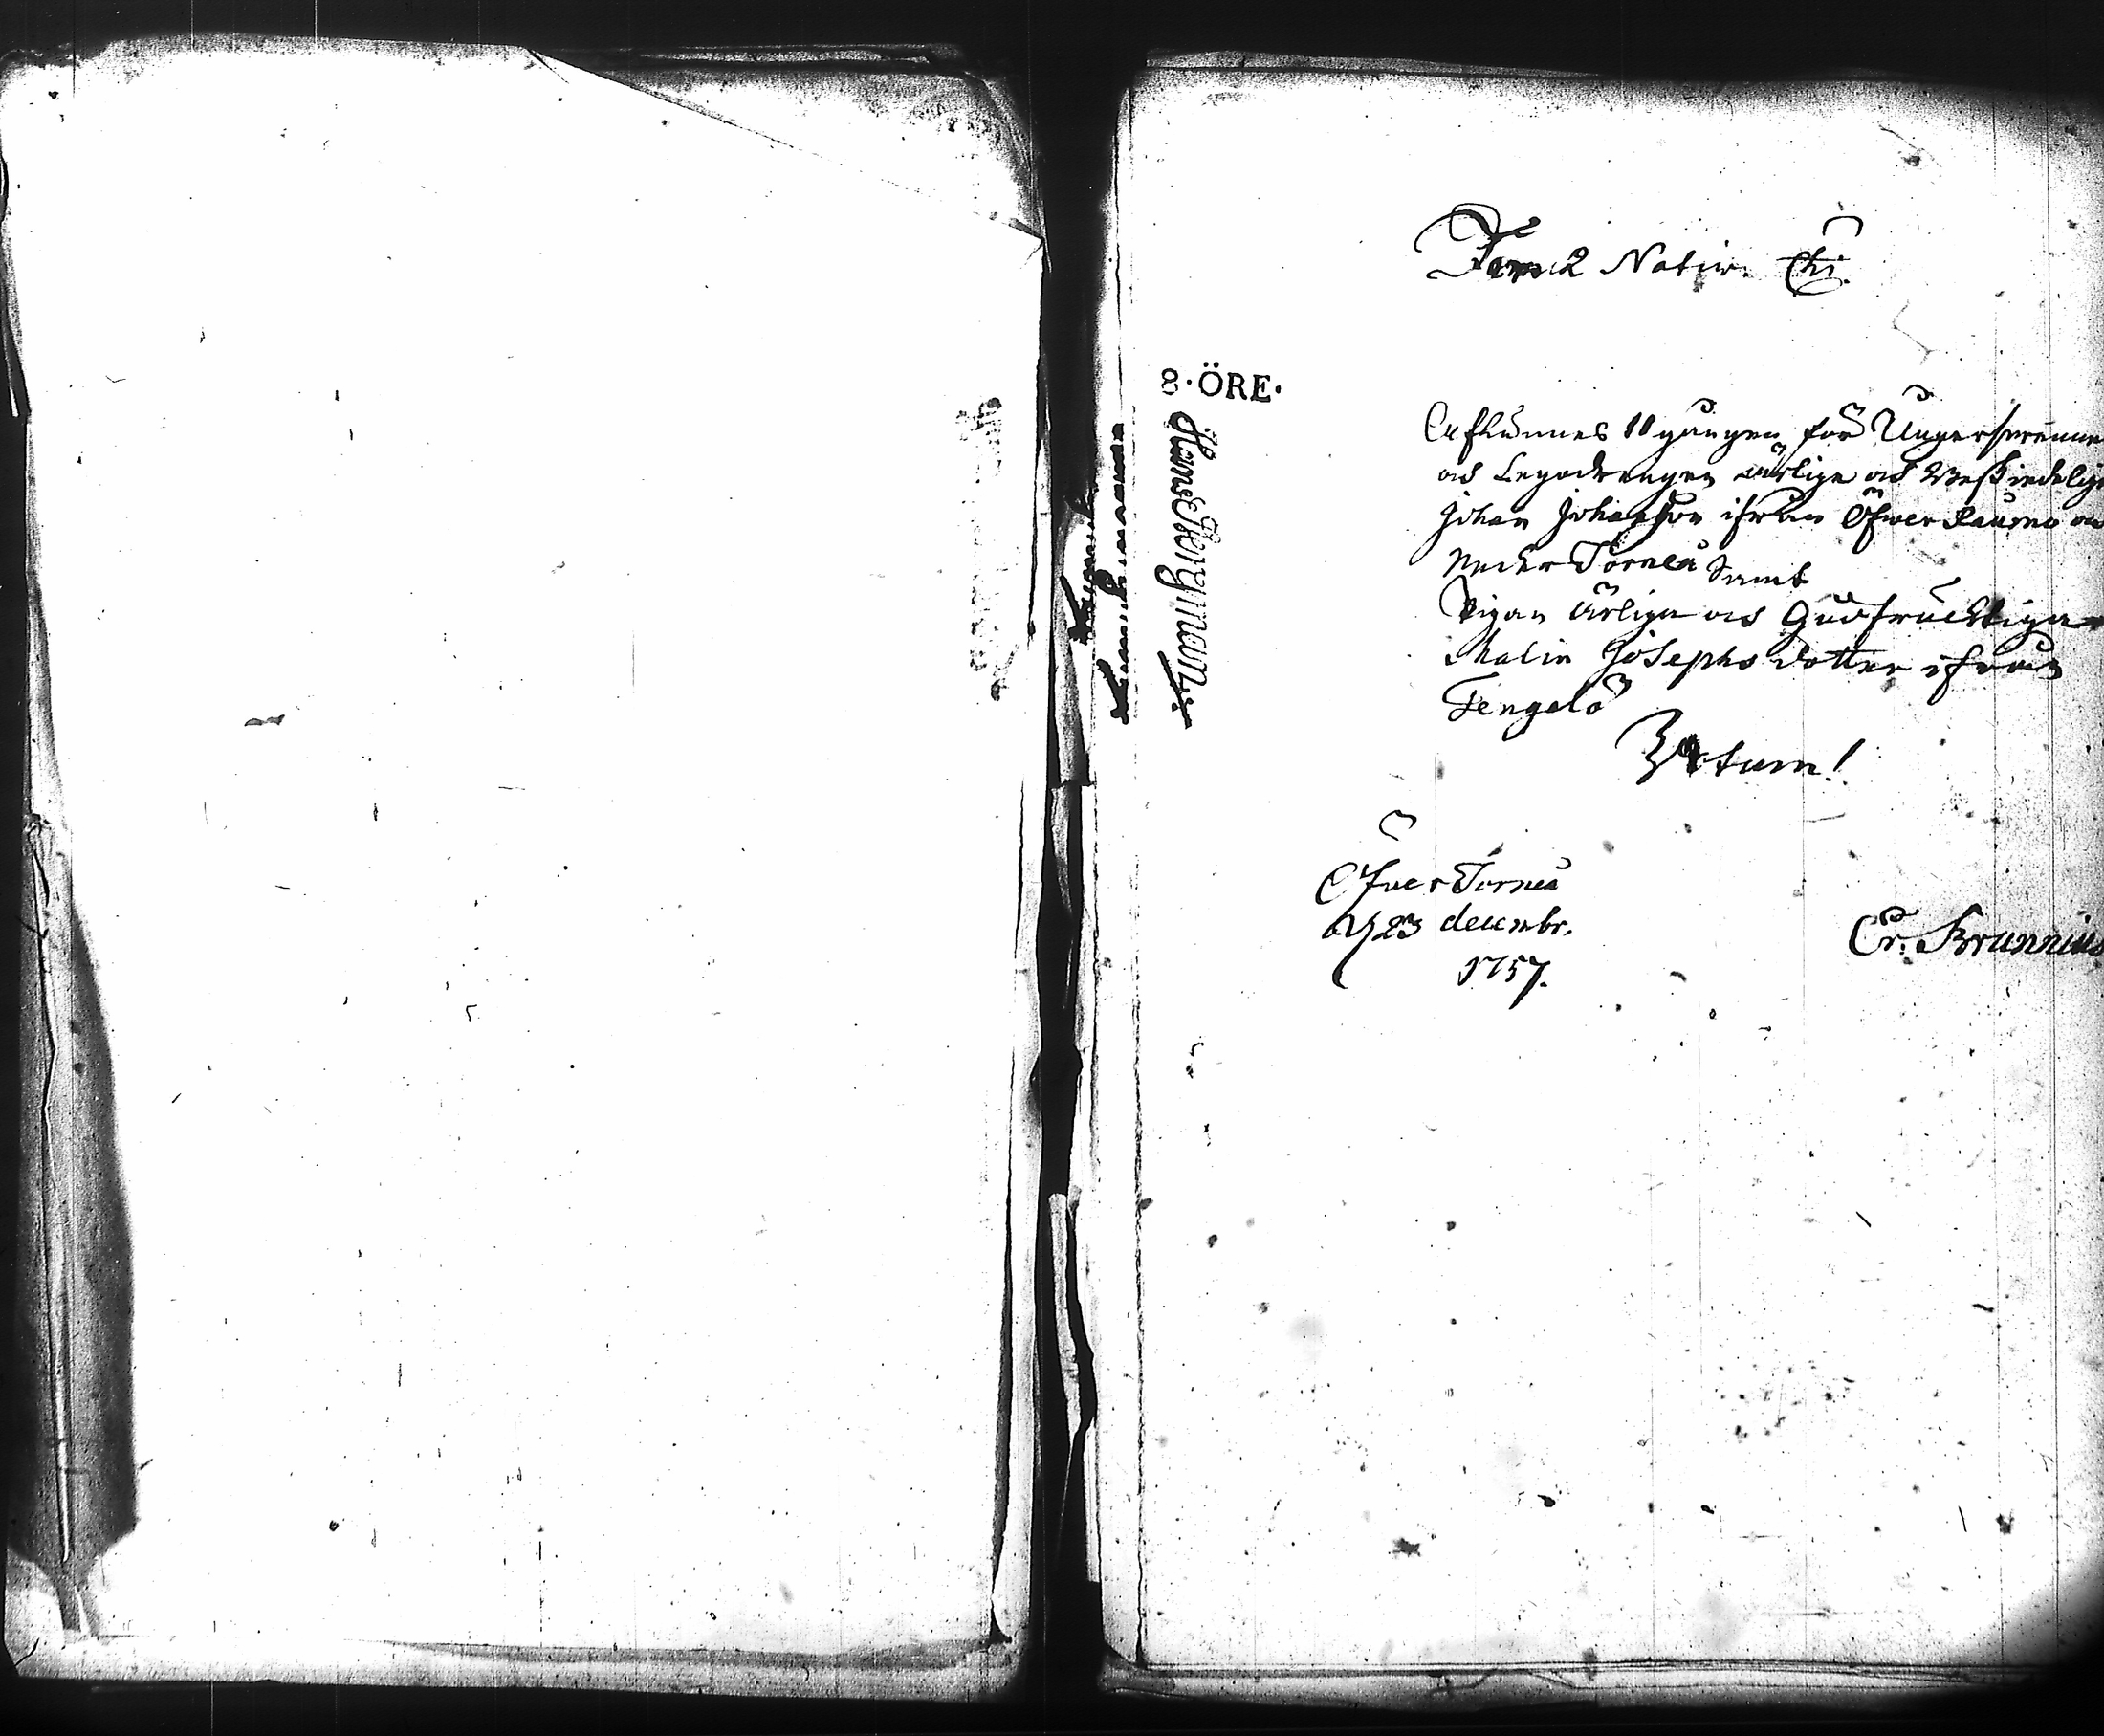 Fer: 2 Nativ. Chi.
8·ÖRE·
Afkunnes 11 gången för Ungersvennen
och Legodrengen ärlige och Beskiedelige
Johan Johansson ifrån Öfwer Raumo och
Neder Torneå samt
Pigan ärliga och Gudfrucktiga
Malin Josephs dotter ifrån
Tengelö
Votum!
Öfver Torneå
d 23 decembr.
1757.
Er. Brunnius